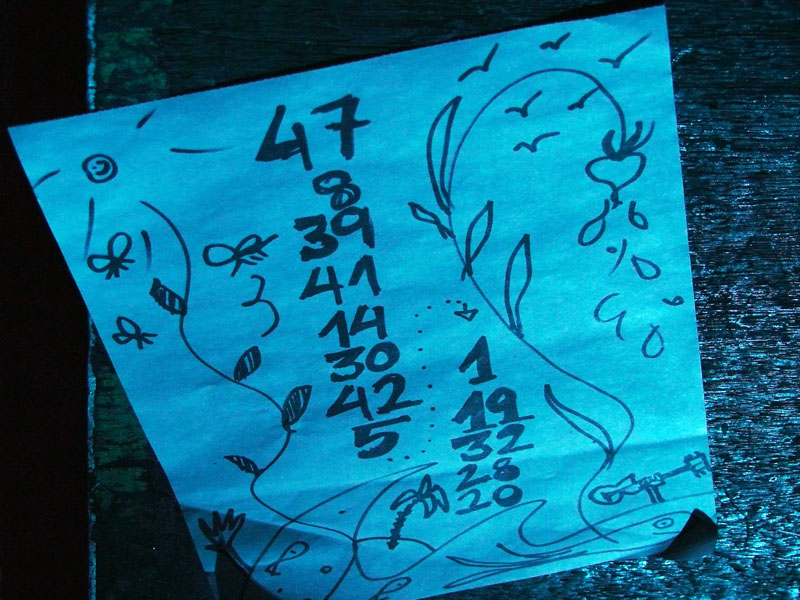 47
8
39
41
14
30
42
5
1
19
32
28
20